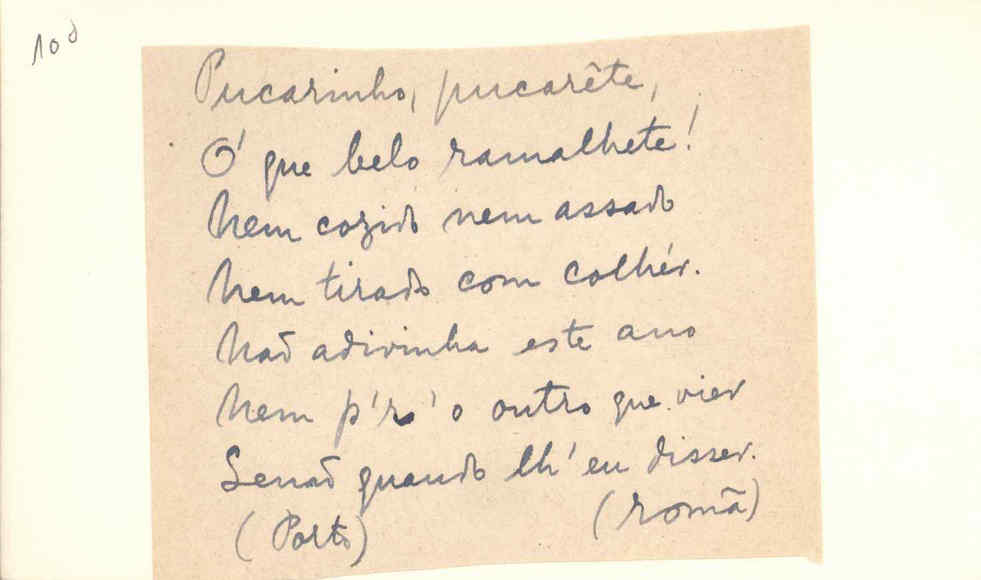 100
Pucarinho, pucarête,
Ó que belo ramalhete!
Nem cozido nem assado
Nem tirado com colhér.
Não adivinha este ano
Nem p'ró o outro que vier
Senão quando lh'eu disser.
(Porto) (romã)